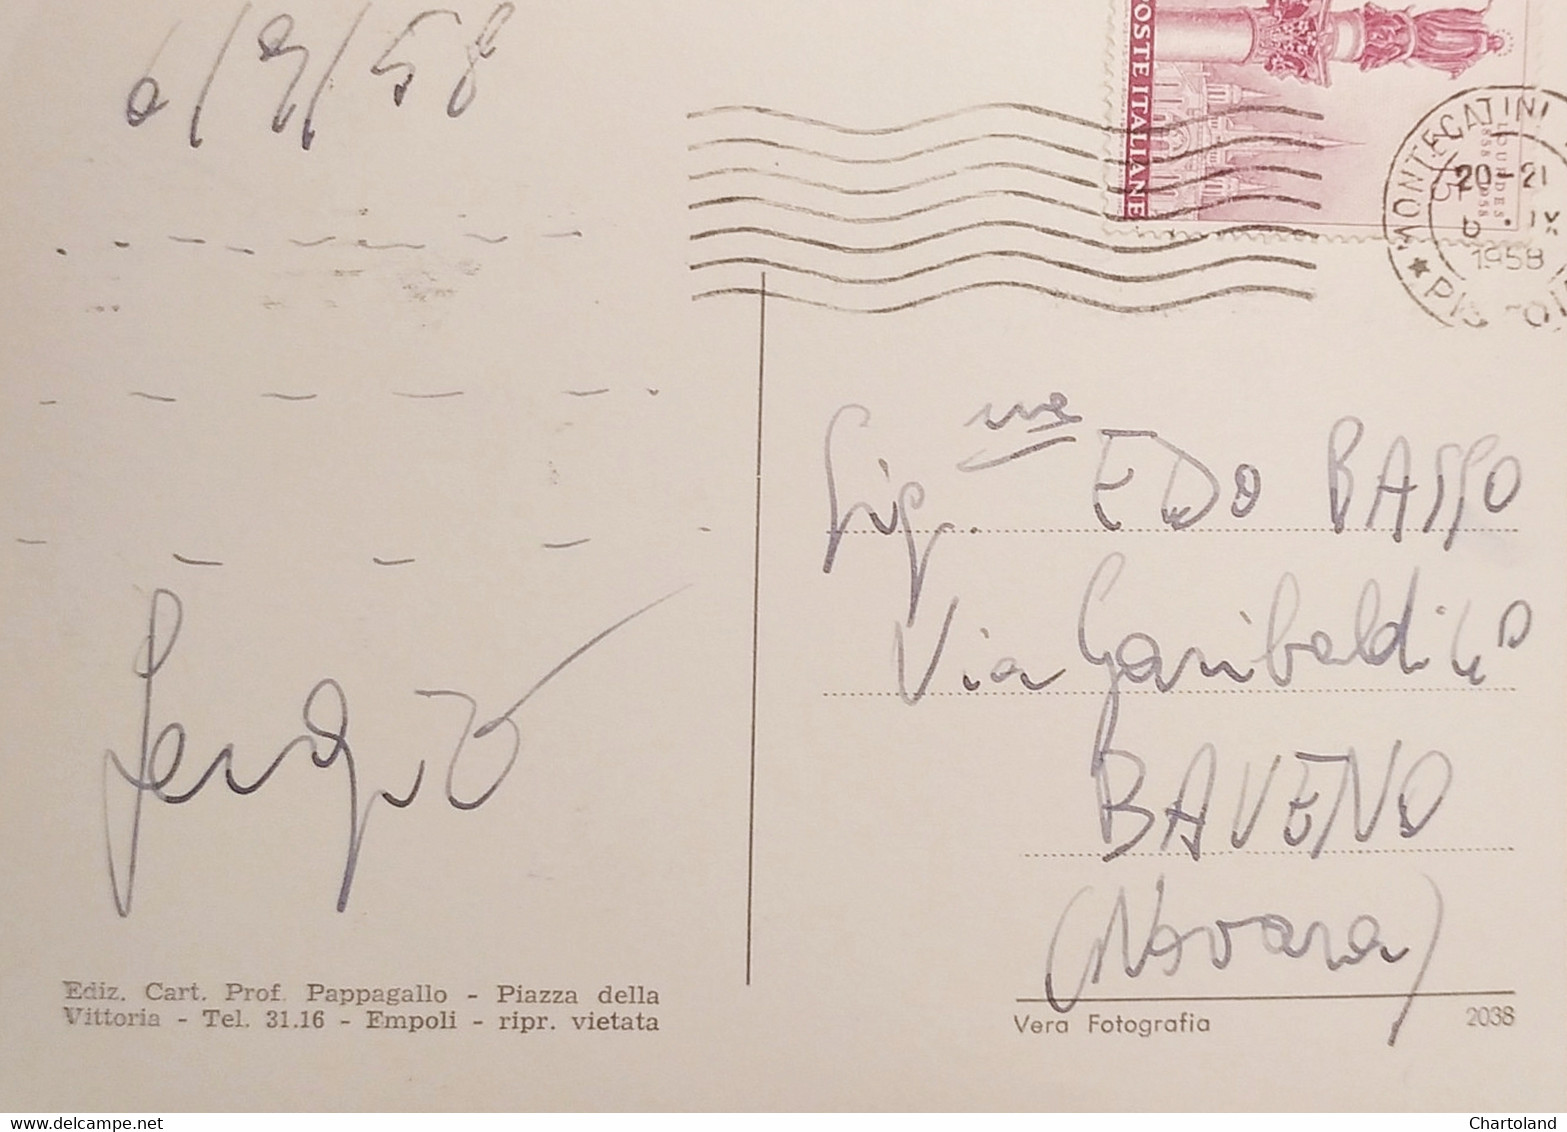 6/9/58
POSTE ITALIANE
LOURDES
1858 1958
MONTECATINI
20-21
6 . IX
1958
Sergio
Sig.na EDO BASSO
Via Garibaldi
BAVENO
(Novara)
Ediz. Cart. Prof. Pappagallo - Piazza della
Vittoria - Tel. 31.16 - Empoli - ripr. vietata
Vera Fotografia
2038
delcampe.net
Chartoland